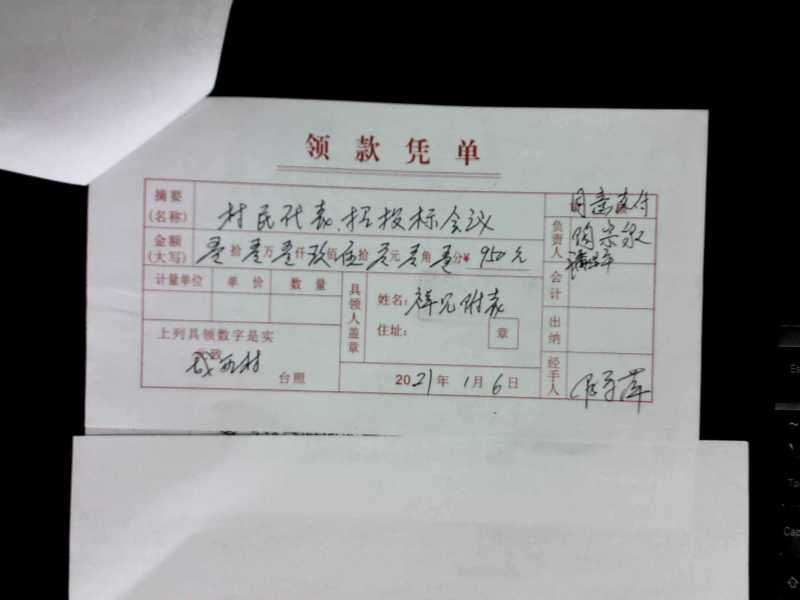 领款凭单
摘要(名称) 村民代表、招投标会议
同意支付
金额(大写) 零拾零万零仟玖佰伍拾零元零角零分¥ 950元
负责人
计量单位 单价 数量
具领人盖章
姓名: 详见附表
住址: 章
会计
出纳
上列具领数字是实
台照
2021年1月6日
经手人